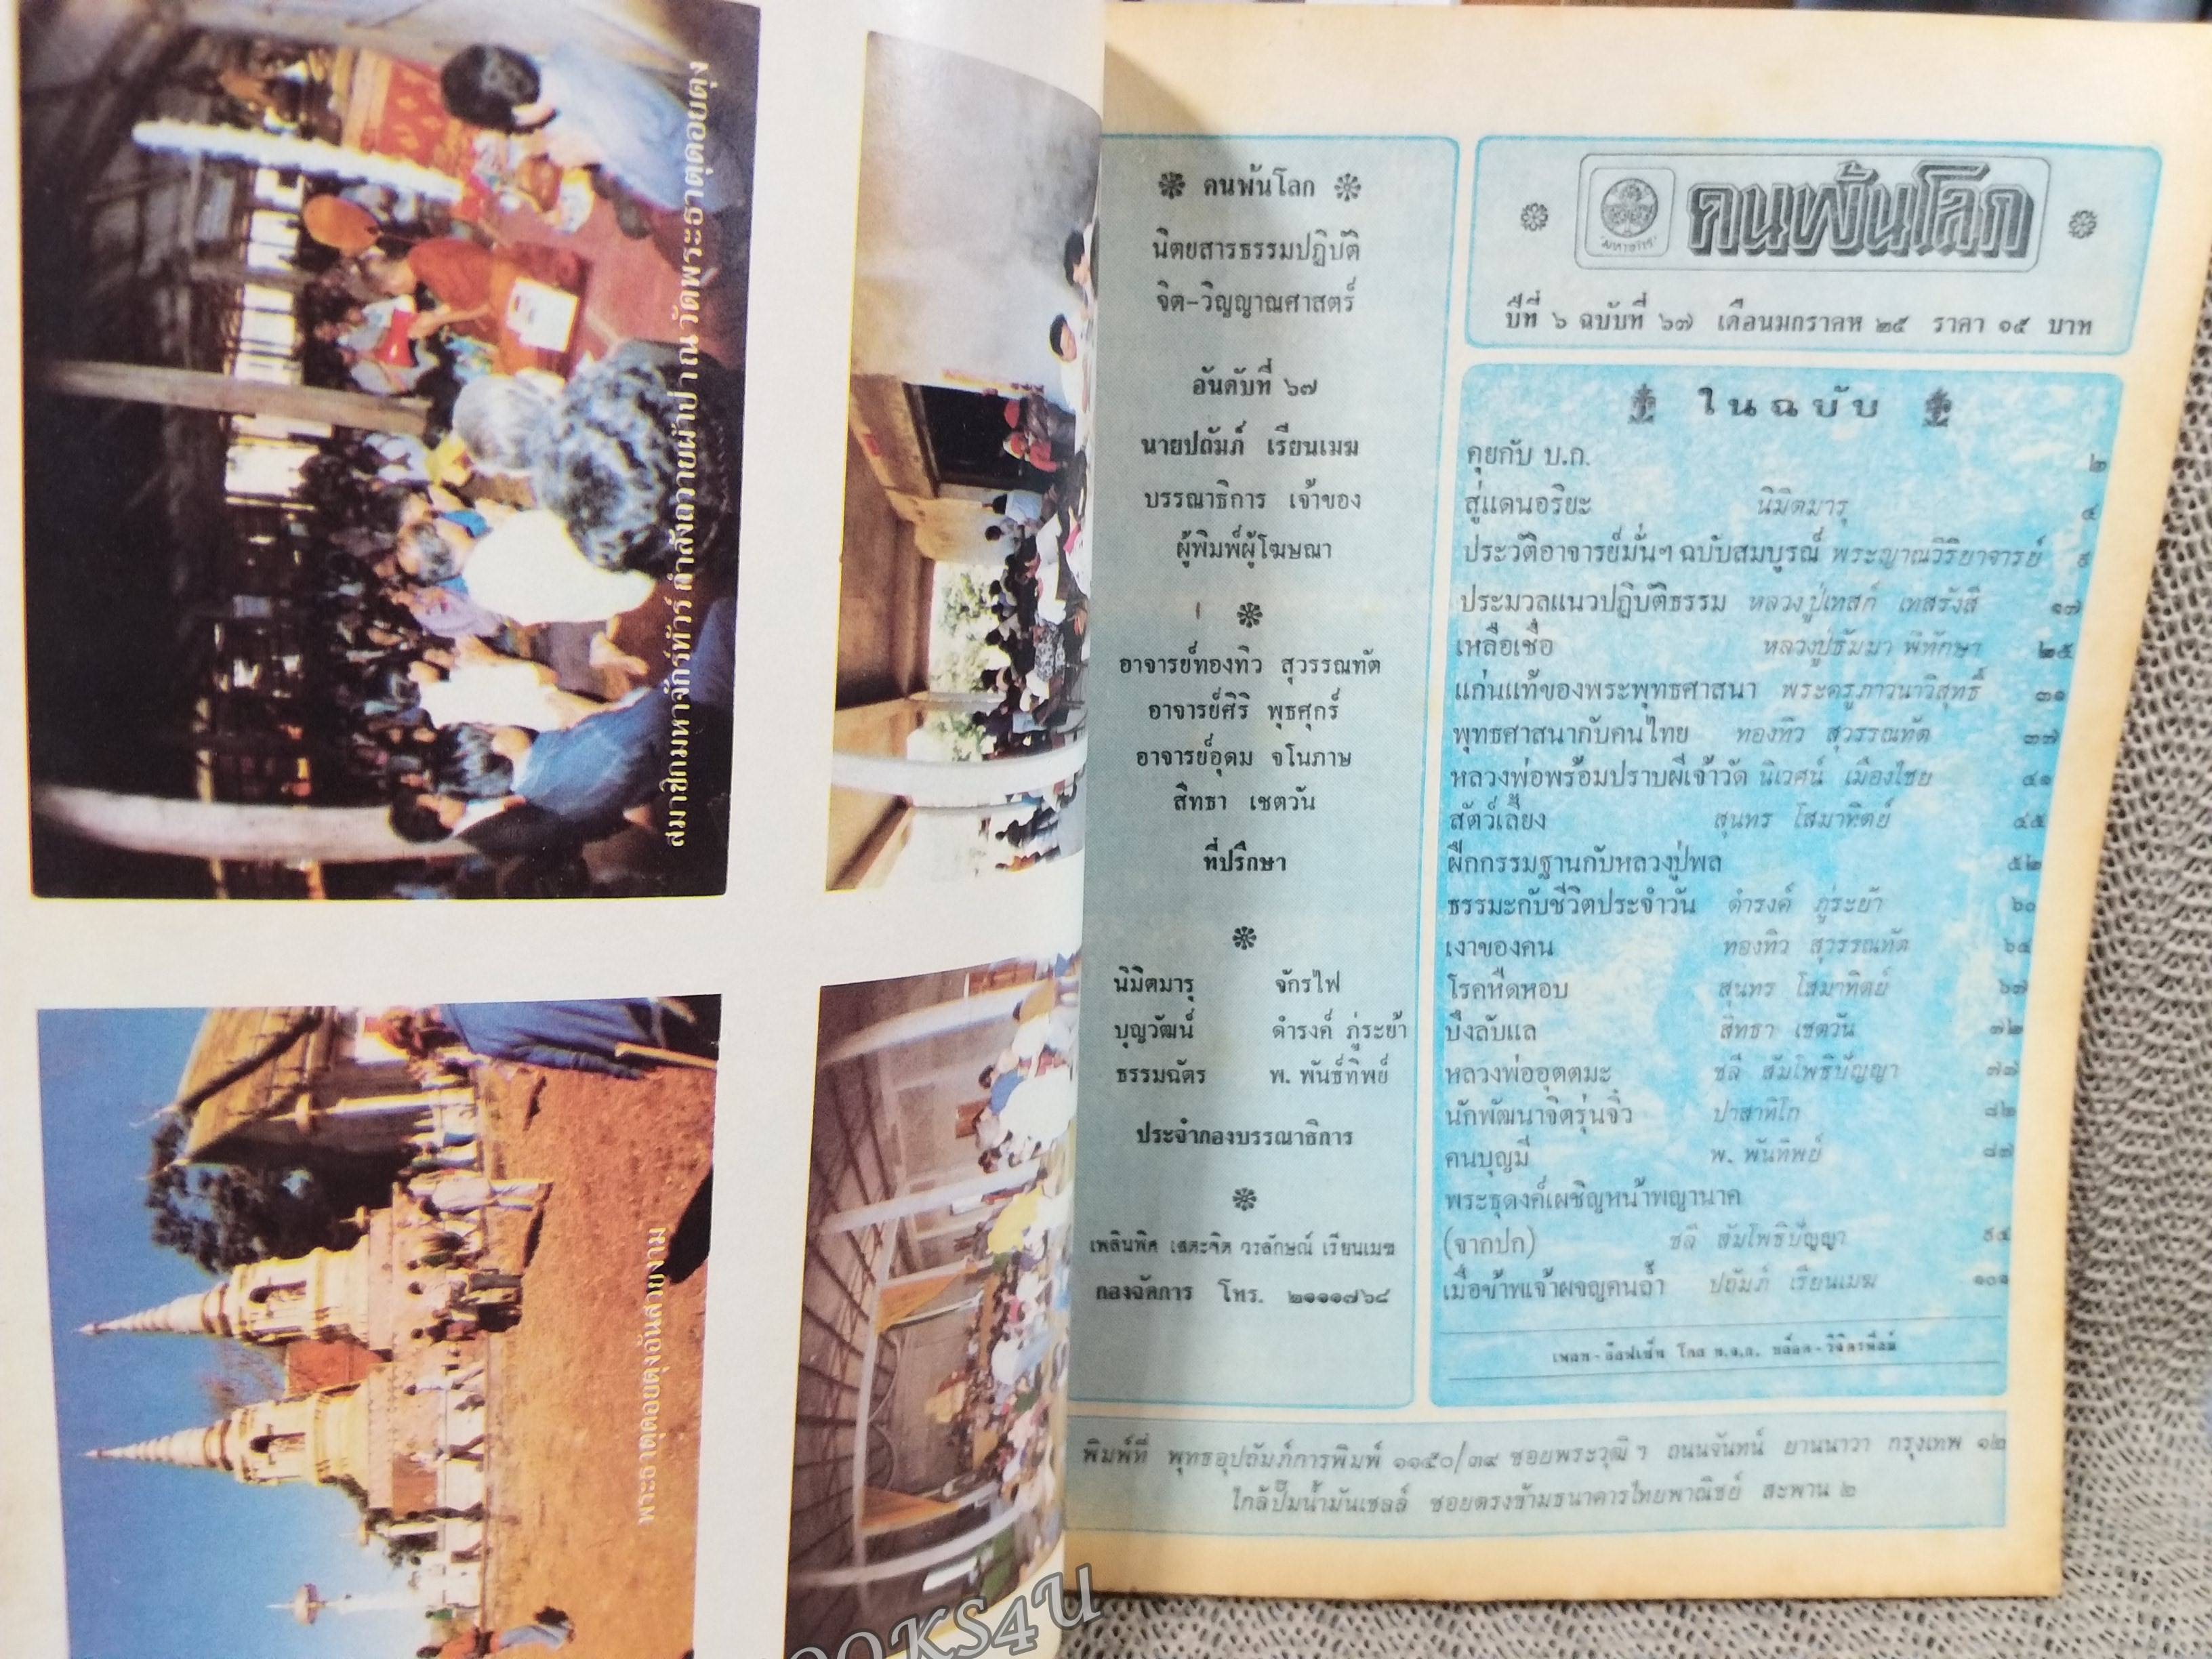 สมาชิกมหาจักร์ทัวร์ กำลังถวายผ้าป่า ณ วัดพระธาตุดอยตุง
พระธาตุดอยตุงอันสวยงาม
คนพ้นโลก
นิตยสารธรรมปฏิบัติ
จิต-วิญญาณศาสตร์
อันดับที่ ๖๗
นายปถัมภ์ เรียนเมฆ
บรรณาธิการ เจ้าของ
ผู้พิมพ์ผู้โฆษณา
อาจารย์ทองทิว สุวรรณทัต
อาจารย์ศิริ พุธศุกร์
อาจารย์อุดม จโนภาษ
สิทธา เชตวัน
ที่ปรึกษา
นิมิตมารุ จักรไฟ
บุญวัฒน์ ดำรงค์ ภู่ระย้า
ธรรมฉัตร พ. พันธ์ทิพย์
ประจำกองบรรณาธิการ
เพลินพิศ เสตะจิต วรลักษณ์ เรียนเมฆ
กองจัดการ โทร. ๒๑๑๑๗๖๘
คนพ้นโลก
ปีที่ ๖ ฉบับที่ ๖๗ เดือนมกราคห ๒๕ ราคา ๑๕ บาท
ในฉบับ
คุยกับ บ.ก. ๒
สู่แดนอริยะ นิมิตมารุ ๔
ประวัติอาจารย์มั่นฯ ฉบับสมบูรณ์ พระญาณวิริยาจารย์ ๙
ประมวลแนวปฏิบัติธรรม หลวงปู่เทสก์ เทสรังสี ๑๗
เหลือเชื่อ หลวงปู่ธัมมา พิทักษา ๒๕
แก่นแท้ของพระพุทธศาสนา พระครูภาวนาวิสุทธิ์ ๓๑
พุทธศาสนากับคนไทย ทองทิว สุวรรณทัต ๓๗
หลวงพ่อพร้อมปราบผีเจ้าวัด นิเวศน์ เมืองไชย ๔๑
สัตว์เลี้ยง สุนทร โสมาทิตย์ ๔๕
ฝึกกรรมฐานกับหลวงปู่พล ๕๒
ธรรมะกับชีวิตประจำวัน ดำรงค์ ภู่ระย้า ๖๐
เงาของคน ทองทิว สุวรรณทัต ๖๔
โรคหืดหอบ สุนทร โสมาทิตย์ ๖๗
บึงลับแล สิทธา เชตวัน ๗๒
หลวงพ่ออุตตมะ ชลี สัมโพธิปัญญา ๗๗
นักพัฒนาจิตรุ่นจิ๋ว ปาสาทิโก ๘๒
คนบุญมี พ. พันทิพย์ ๘๗
พระธุดงค์เผชิญหน้าพญานาค
(จากปก) ชลี สัมโพธิปัญญา ๙๔
เมื่อข้าพเจ้าผจญคนถ้ำ ปถัมภ์ เรียนเมฆ ๑๐๑
พิมพ์ที่ พุทธอุปถัมภ์การพิมพ์ ๑๑๕๐/๓๙ ซอยพระวุฒิฯ ถนนจันทน์ ยานนาวา กรุงเทพ ๑๒
ใกล้ปั๊มน้ำมันเชลล์ ซอยตรงข้ามธนาคารไทยพาณิชย์ สะพาน ๒
OOKS4U